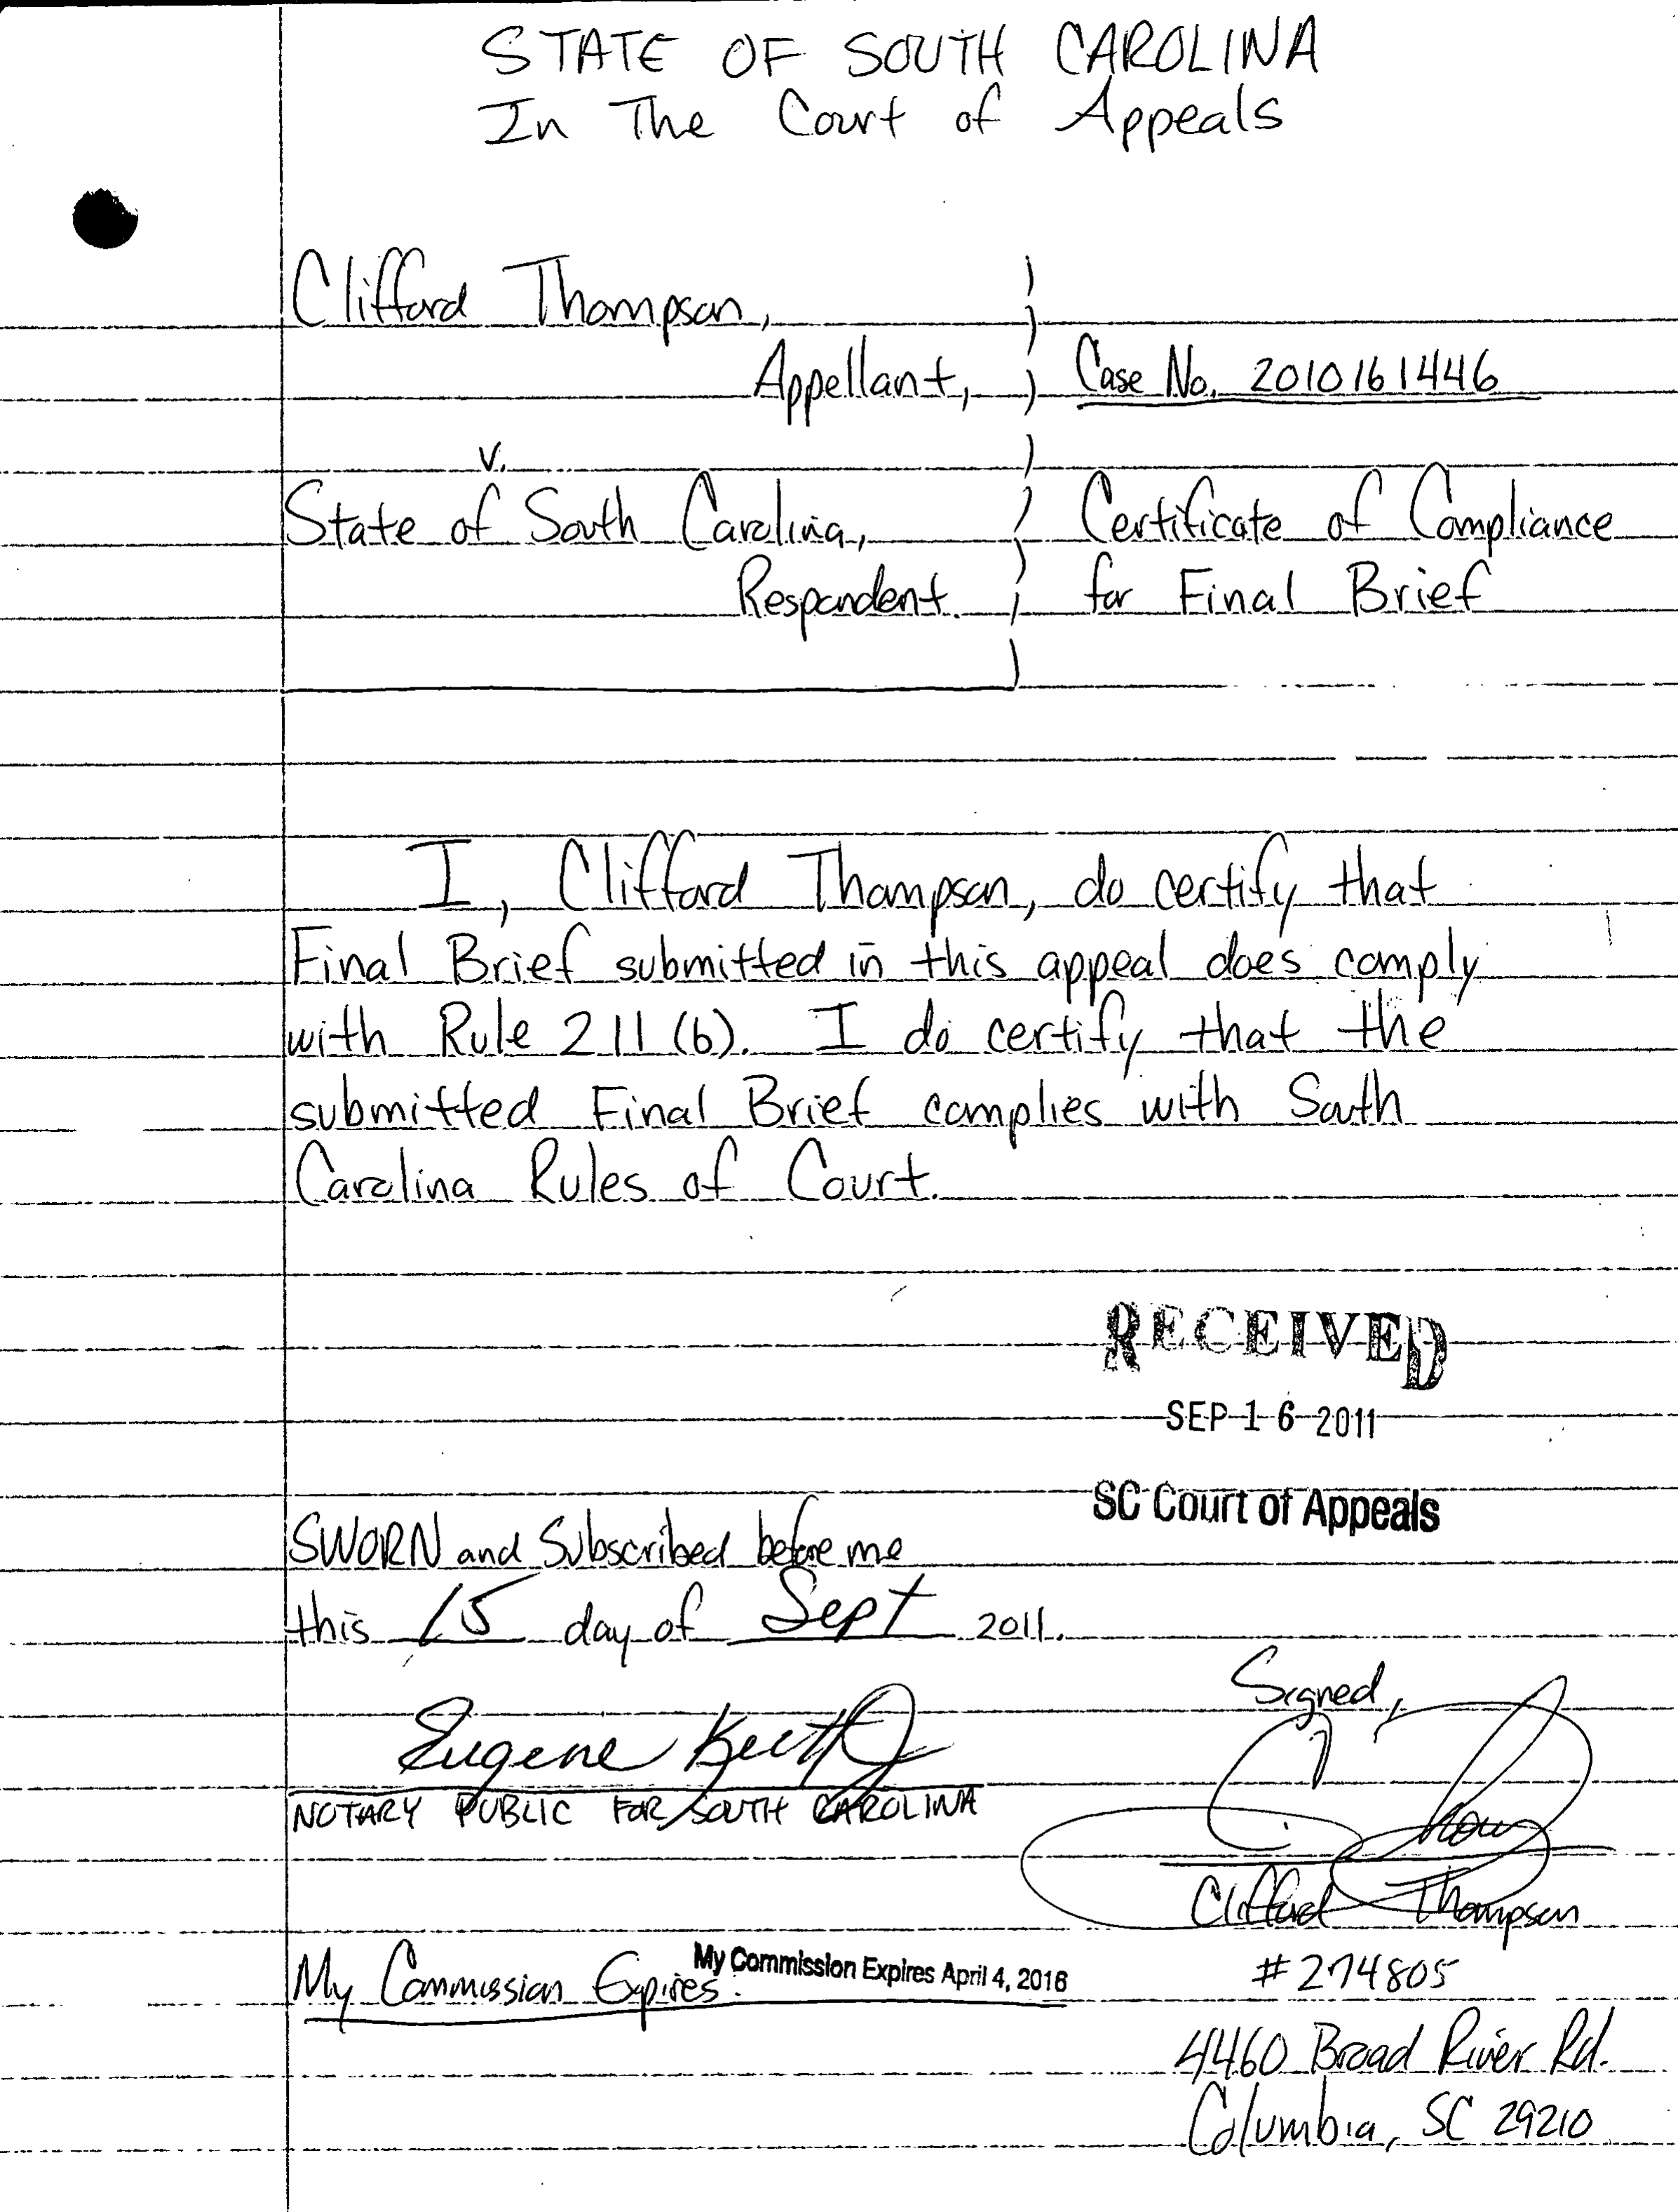 STATE OF SOUTH CAROLINA
In The Court of Appeals
Clifford Thompson,
Appellant,
Case No. 2010161446
v.
State of South Carolina,
Respondent.
Certificate of Compliance
for Final Brief
I, Clifford Thompson, do certify that
Final Brief submitted in this appeal does comply
with Rule 211 (b). I do certify that the
submitted Final Brief complies with South
Carolina Rules of Court.
RECEIVED
SEP 16 2011
SC Court of Appeals
SWORN and Subscribed before me
this 15 day of Sept 2011.
Signed,
Eugene
NOTARY PUBLIC FOR SOUTH CAROLINA
Clifford Thompson
My Commission Expires: My Commission Expires April 4, 2016
#274805
4460 Broad River Rd.
Columbia, SC 29210